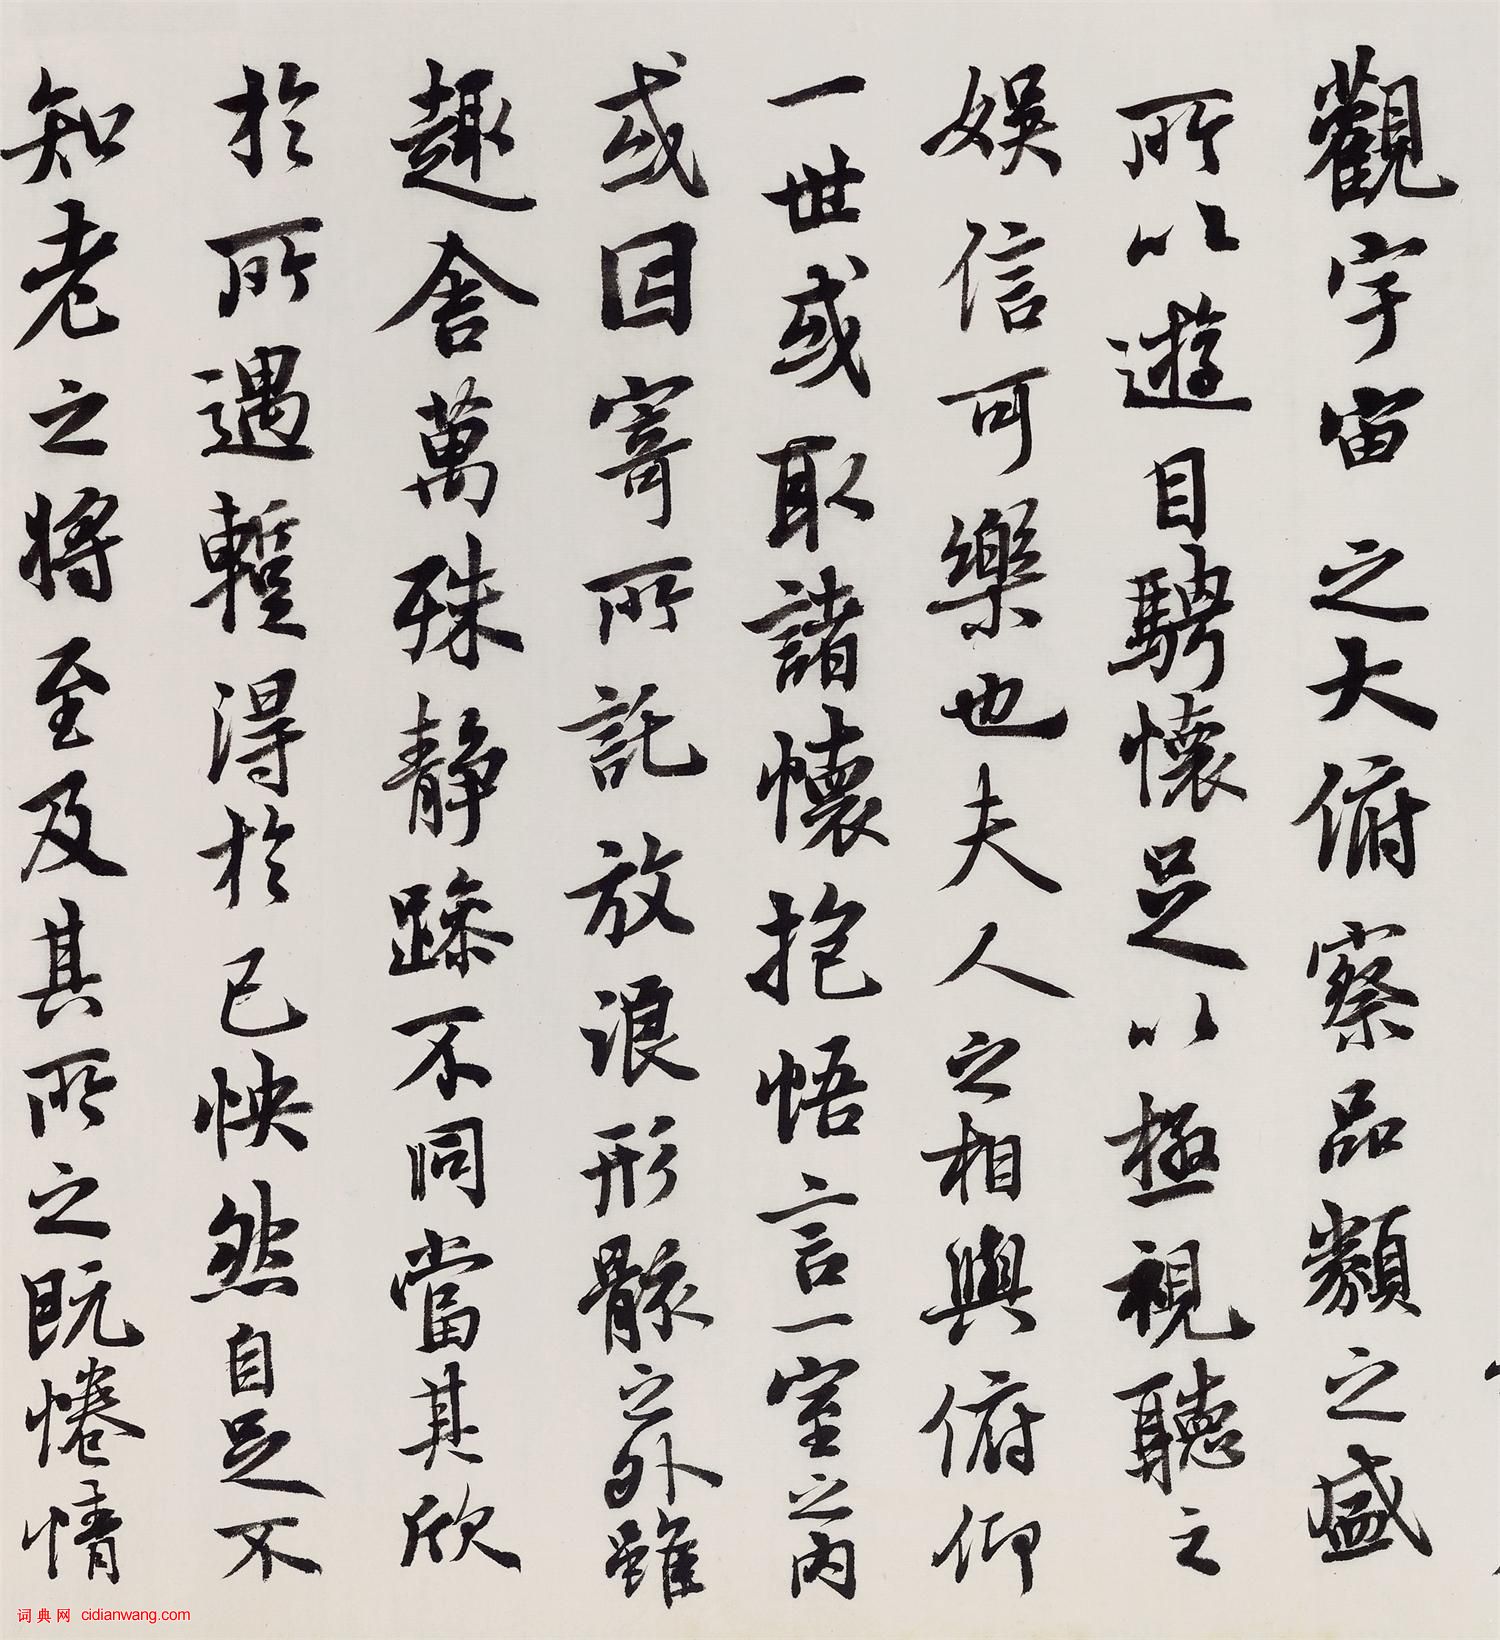 觀宇宙之大俯察品類之盛
所以遊目騁懷足以極視聽之
娛信可樂也夫人之相與俯仰
一世或取諸懷抱悟言一室之內
或因寄所託放浪形骸之外雖
趣舍萬殊靜躁不同當其欣
於所遇蹔得於己怏然自足不
知老之將至及其所之既惓情
词典网 cidianwang.com